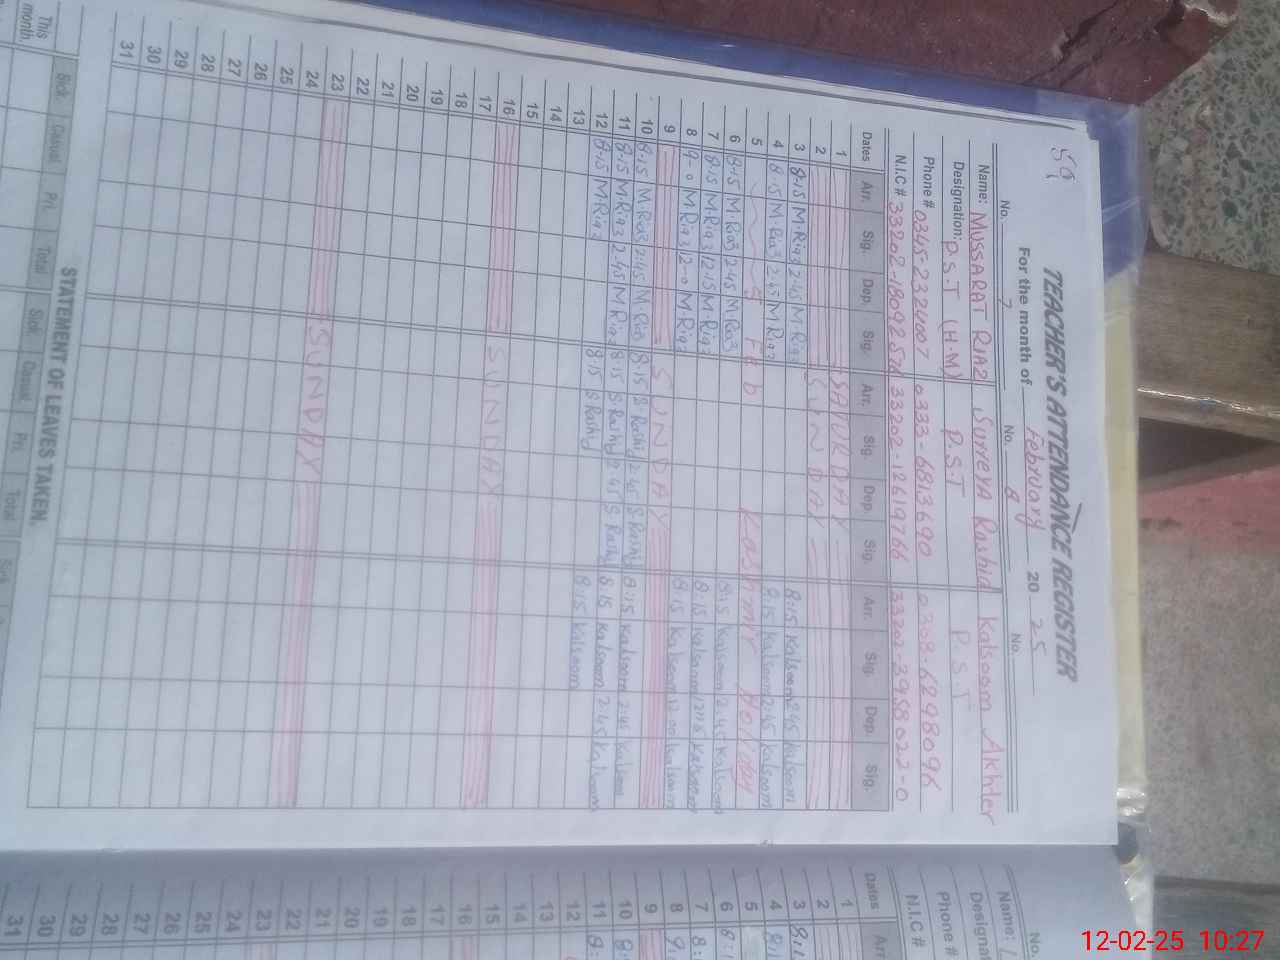 59
TEACHER'S ATTENDANCE REGISTER
For the month of February 20 25
No. 7 No. 8 No.
Name: MUSSARAT RIAZ Surreya Rashid Kalsoom Akhter
Designation: P.S.T (H.M) P.S.T P.S.T
Phone # 0345-2324007 0333-6813690 0308-6298096
N.I.C # 33202-1809252 33202-1261976 6 33202-3958022-0
Dates Arr. Sig. Dep. Sig. Arr. Sig. Dep. Sig. Arr. Sig. Dep. Sig.
1 SATURDAY
2 SUNDAY
3 8:15 M.Riaz 2:45 M.Riaz 8:15 Kalsoom 2:45 Kalsoom
4 8:15 M.Riaz 2:45 M.Riaz 8:15 Kalsoom 2:45 Kalsoom
5 5 Feb Kashmir Holiday
6 8:15 M.Riaz 2:45 M.Riaz 8:15 Kalsoom 2:45 Kalsoom
7 8:15 M.Riaz 12:15 M.Riaz 8:15 Kalsoom 12:15 Kalsoom
8 9-0 M.Riaz 12-0 M.Riaz 8:15 Kalsoom 12:00 Kalsoom
9 SUNDAY
10 8:15 M.Riaz 2:45 M.Riaz 8:15 S Rashid 2:45 S Rashid 8:15 Kalsoom 2:45 Kalsoom
11 8:15 M.Riaz 2:45 M.Riaz 8:15 S Rashid 2:45 S Rashid 8:15 Kalsoom 2:45 Kalsoom
12 8:15 M.Riaz 8:15 S Rashid 8:15 Kalsoom
13
14
15
16 SUNDAY
17
18
19
20
21
22
23 SUNDAY
24
25
26
27
28
29
30
31
STATEMENT OF LEAVES TAKEN.
Sick Casual Pri. Total Sick Casual Pri. Total Sick
This month
No.
Name:
Designat
Phone #
N.I.C #
Dates Arr
1
2
3
4
5
6
7
8
9
10
11
12
13
14
15
16
17
18
19
20
21
22
23
24
25
26
27
28
29
30
31
12-02-25 10:27